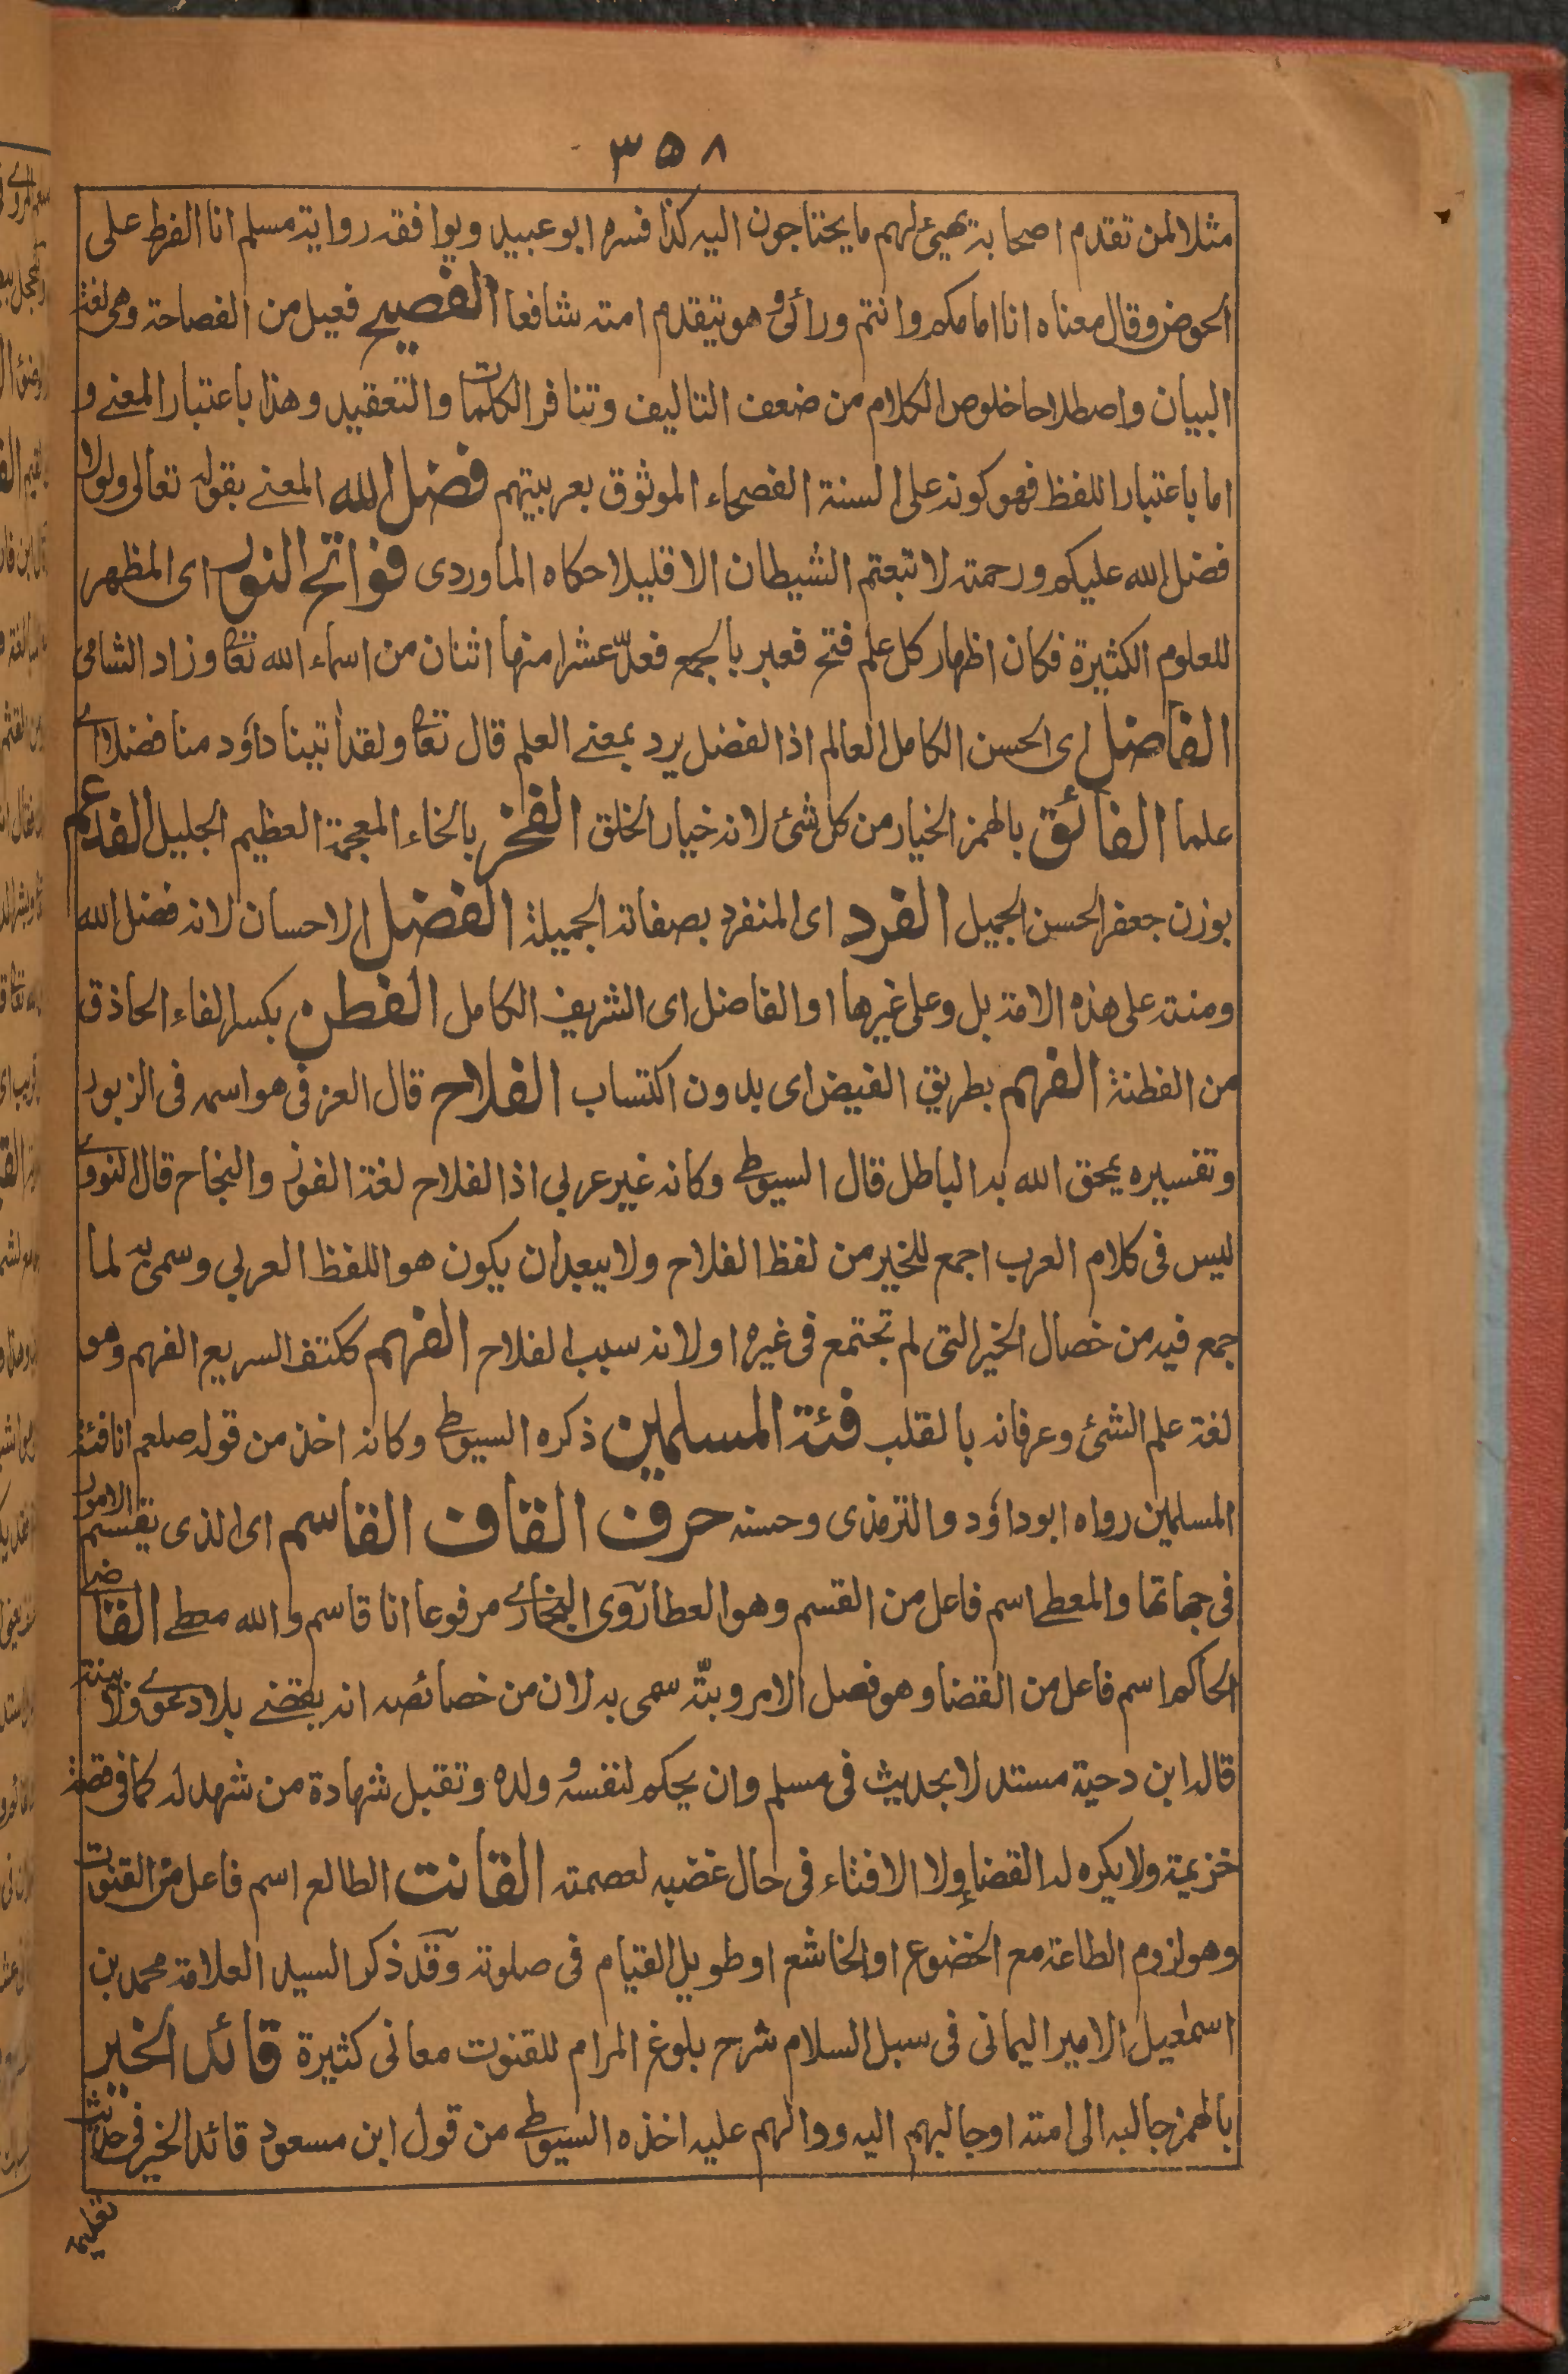 ٣٥٨
مثلا لمن تقدم اصحابه يهيئ لهم ما يحتاجون اليه كذا فسره ابو عبيد ويوافقه رواية مسلم انا الفرط على
الحوض وقال معناه انا امامكم وانتم ورائى وهو يتقدم امته شافعا الفصيح فعيل من الفصاحة وهى لغة
البيان واصطلاحا خلوص الكلام من ضعف التاليف وتنافر الكلمات والتعقيد وهذا باعتبار المعنے و
اما باعتبار اللفظ فهو كونه على السنة الفصحاء الموثوق بعربيتهم فضل الله المعنے بقوله تعالى ولولا
فضل الله عليكم ورحمته لا تبعتم الشيطان الا قليلا حكاه الماوردى فواتح النور اى المظهر
للعلوم الكثيرة فكان اظهار كل علم فتح فعبر بالجمع فعدّ عشرا منها اثنان من اسماء الله تعا وزاد الشامى
الفاضل اى الحسن الكامل العالم اذ الفضل يرد بمعنے العلم قال تعا ولقد اتينا داؤد منا فضلا اے
علما الفائق بالهمز الخيار من كل شئ لانه خيار الخلق الفخر بالخاء المعجمة العظيم الجليل الفدعم
بوزن جعفر الحسن الجميل الفرد اى المنفرد بصفاته الجميلة الفضل الاحسان لانه فضل الله
ومنته على هذه الامة بل وعلى غيرها او الفاضل اى الشريف الكامل الفطن بكسر الفاء الحاذق
من الفطنة الفهم بطريق الفيض اى بدون اكتساب الفلاح قال العزفى هو اسمه فى الزبور
وتفسيره يمحق الله به الباطل قال السيوطے وكانه غير عربى اذ الفلاح لغة الفوز والنجاح قال النووے
ليس فى كلام العرب اجمع للخير من لفظ الفلاح ولا يبعد ان يكون هو اللفظ العربى وسمى به لما
جمع فيه من خصال الخير التى لم تجتمع فى غيره او لانه سبب الفلاح الفهم ككتف السريع الفهم وهو
لغة علم الشئ وعرفانه بالقلب فئة المسلمين ذكره السيوطے وكانه اخذ من قوله صلعم انا فئة
المسلمين رواه ابو داؤد والترمذى وحسنه حرف القاف القاسم اى الذى يقسم الامور
فى جهاتها والمعطے اسم فاعل من القسم وهو العطا روى البخارے مرفوعا انا قاسم والله معطے القاضے
الحاكم اسم فاعل من القضا وهو فصل الامر وبتّه سمى به لان من خصائصه انه يقضے بلا دعوے ولا بينة
قاله ابن دحية مستدلا بحديث فى مسلم وان يحكم لنفسه وولده وتقبل شهادة من شهد له كما فى قصة
خزيمة ولا يكره له القضا ولا الافتاء فى حال غضبه لعصمته القانت الطائع اسم فاعل من القنوت
وهو لزوم الطاعة مع الخضوع او الخاشع او طويل القيام فى صلوته وقد ذكر السيد العلامة محمد بن
اسمعيل الامير اليمانى فى سبل السلام شرح بلوغ المرام للقنوت معانى كثيرة قائد الخير
بالهمز جالبه الى امته او جالبهم اليه ودالهم عليه اخذه السيوطے من قول ابن مسعود قائد الخير فى حديث
تعليمه